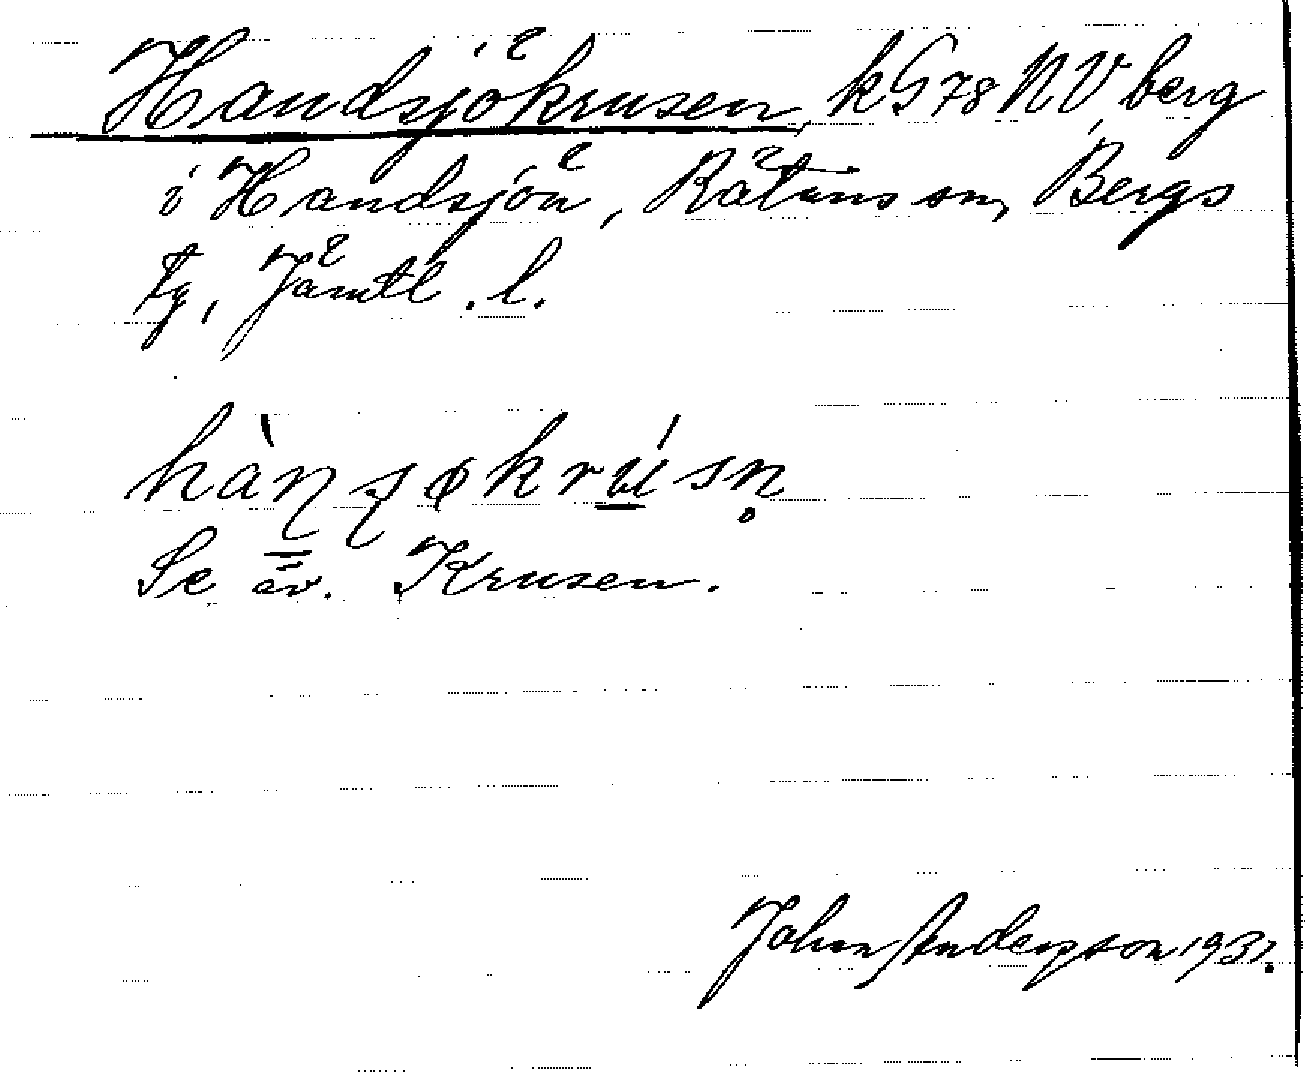 Handsjökrusen, k G 78 NV, berg
i Handsjön, Rätans sn, Bergs
tg, Jämtl. l.
hànʂøkrúsn̥
Se äv. Krusen.
John Anderson 1931.